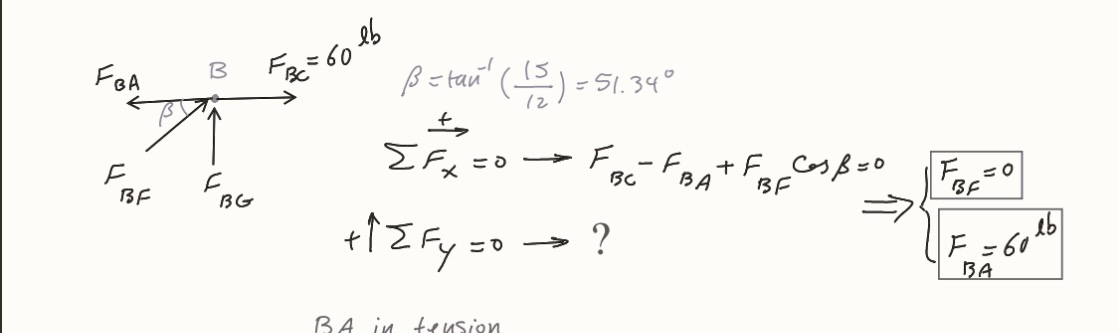 F_BA B F_BC = 60 lb
β
F_BF F_BG
β = tan⁻¹ (15/12) = 51.34°
+→ ΣF_x = 0 → F_BC - F_BA + F_BF Cos β = 0
+↑ ΣF_y = 0 → ?
⇒ { F_BF = 0
F_BA = 60 lb
BA in tension